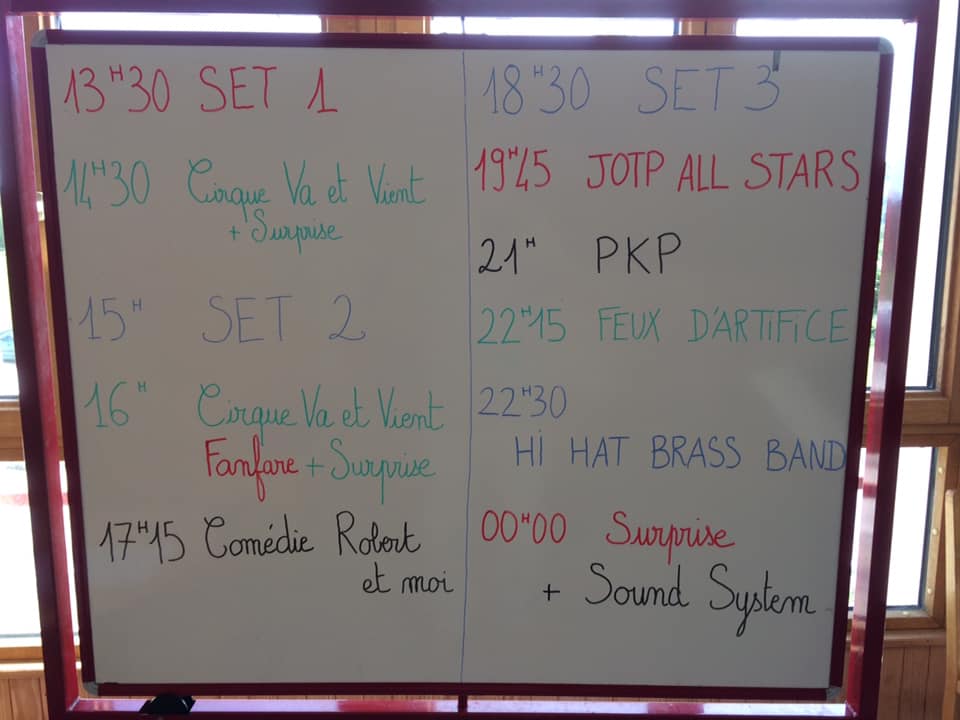 13H30 SET 1
14H30 Cirque Va et Vient
+ Surprise
15H SET 2
16H Cirque Va et Vient
Fanfare + Surprise
17H15 Comédie Robert
et moi
18H30 SET 3
19H45 JOTP ALL STARS
21H PKP
22H15 FEUX D'ARTIFICE
22H30
HI HAT BRASS BAND
00H00 Surprise
+ Sound System